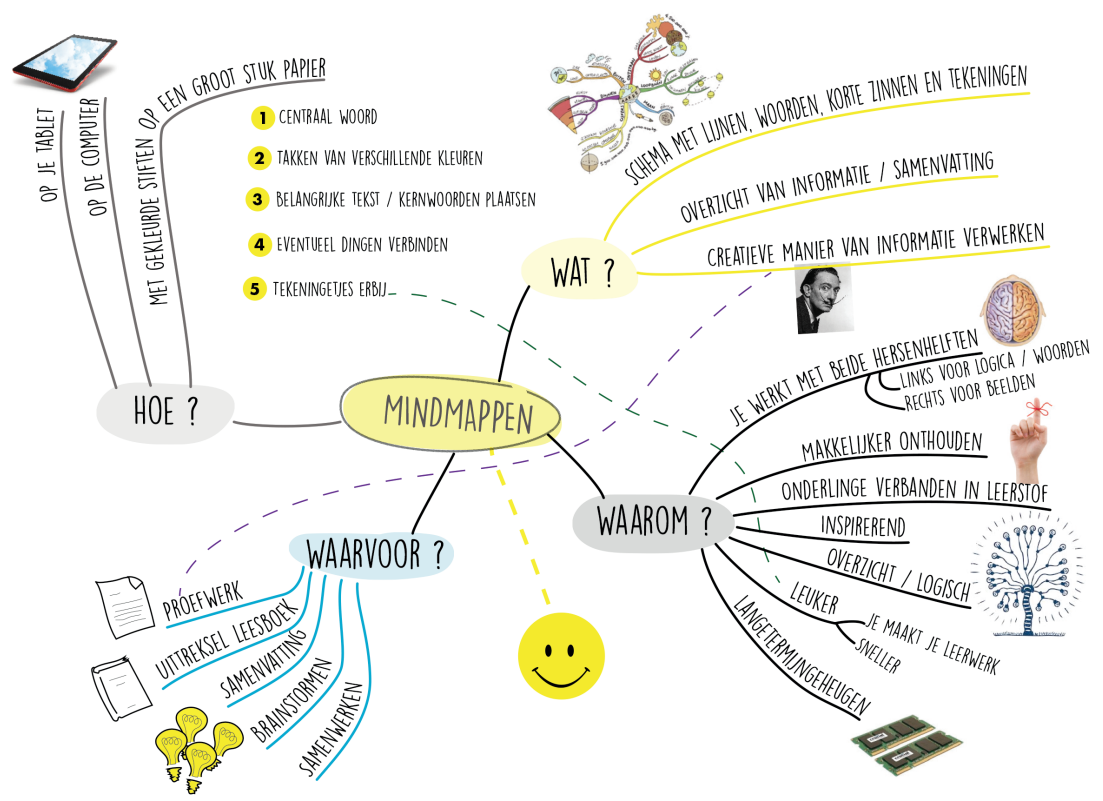 MINDMAPPEN
HOE ?
OP JE TABLET
OP DE COMPUTER
MET GEKLEURDE STIFTEN OP EEN GROOT STUK PAPIER
1 CENTRAAL WOORD
2 TAKKEN VAN VERSCHILLENDE KLEUREN
3 BELANGRIJKE TEKST / KERNWOORDEN PLAATSEN
4 EVENTUEEL DINGEN VERBINDEN
5 TEKENINGETJES ERBIJ
WAT ?
SCHEMA MET LIJNEN, WOORDEN, KORTE ZINNEN EN TEKENINGEN
OVERZICHT VAN INFORMATIE / SAMENVATTING
CREATIEVE MANIER VAN INFORMATIE VERWERKEN
WAAROM ?
JE WERKT MET BEIDE HERSENHELFTEN
LINKS VOOR LOGICA / WOORDEN
RECHTS VOOR BEELDEN
MAKKELIJKER ONTHOUDEN
ONDERLINGE VERBANDEN IN LEERSTOF
INSPIREREND
OVERZICHT / LOGISCH
LEUKER
JE MAAKT JE LEERWERK
SNELLER
LANGETERMIJNGEHEUGEN
WAARVOOR ?
PROEFWERK
UITTREKSEL LEESBOEK
SAMENVATTING
BRAINSTORMEN
SAMENWERKEN